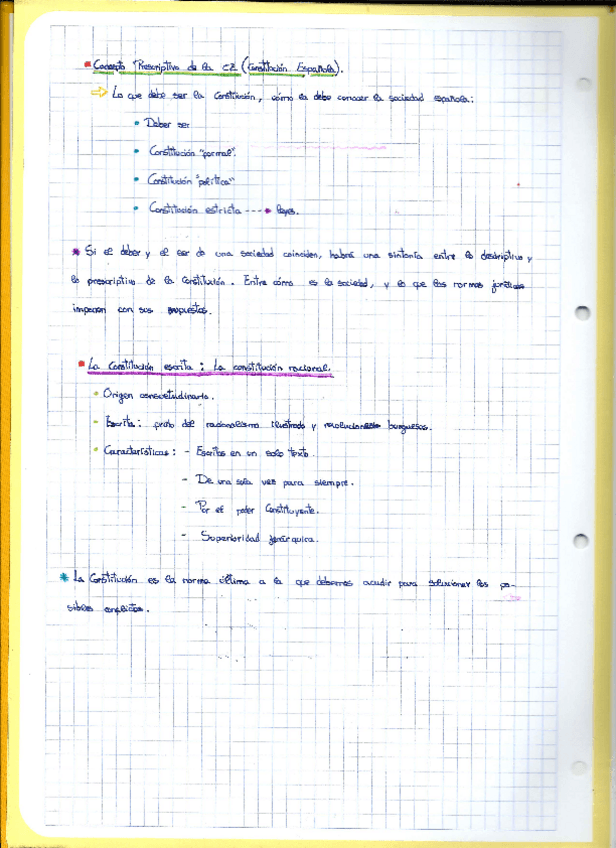 Concepto Prescriptivo de la CE (Constitución Española).
Lo que debe ser la Constitución, cómo la debe conocer la sociedad española:
Deber ser
Constitución "formal".
Constitución "política"
Constitución estricta ---> leyes.
* Si el deber y el ser de una sociedad coinciden, habrá una sintonía entre lo descriptivo y
lo prescriptivo de la Constitución. Entre cómo es la sociedad, y lo que las normas jurídicas
imponen con sus propuestas.
La Constitución escrita: La constitución racional.
- Origen consuetudinario.
- Escrita: fruto del racionalismo ilustrado y revoluciones burguesas.
Características: - Escritas en un solo texto.
- De una sola vez para siempre.
- Por el poder Constituyente.
- Superioridad jerárquica.
* La Constitución es la norma última a la que debemos acudir para solucionar los po-
sibles conflictos.